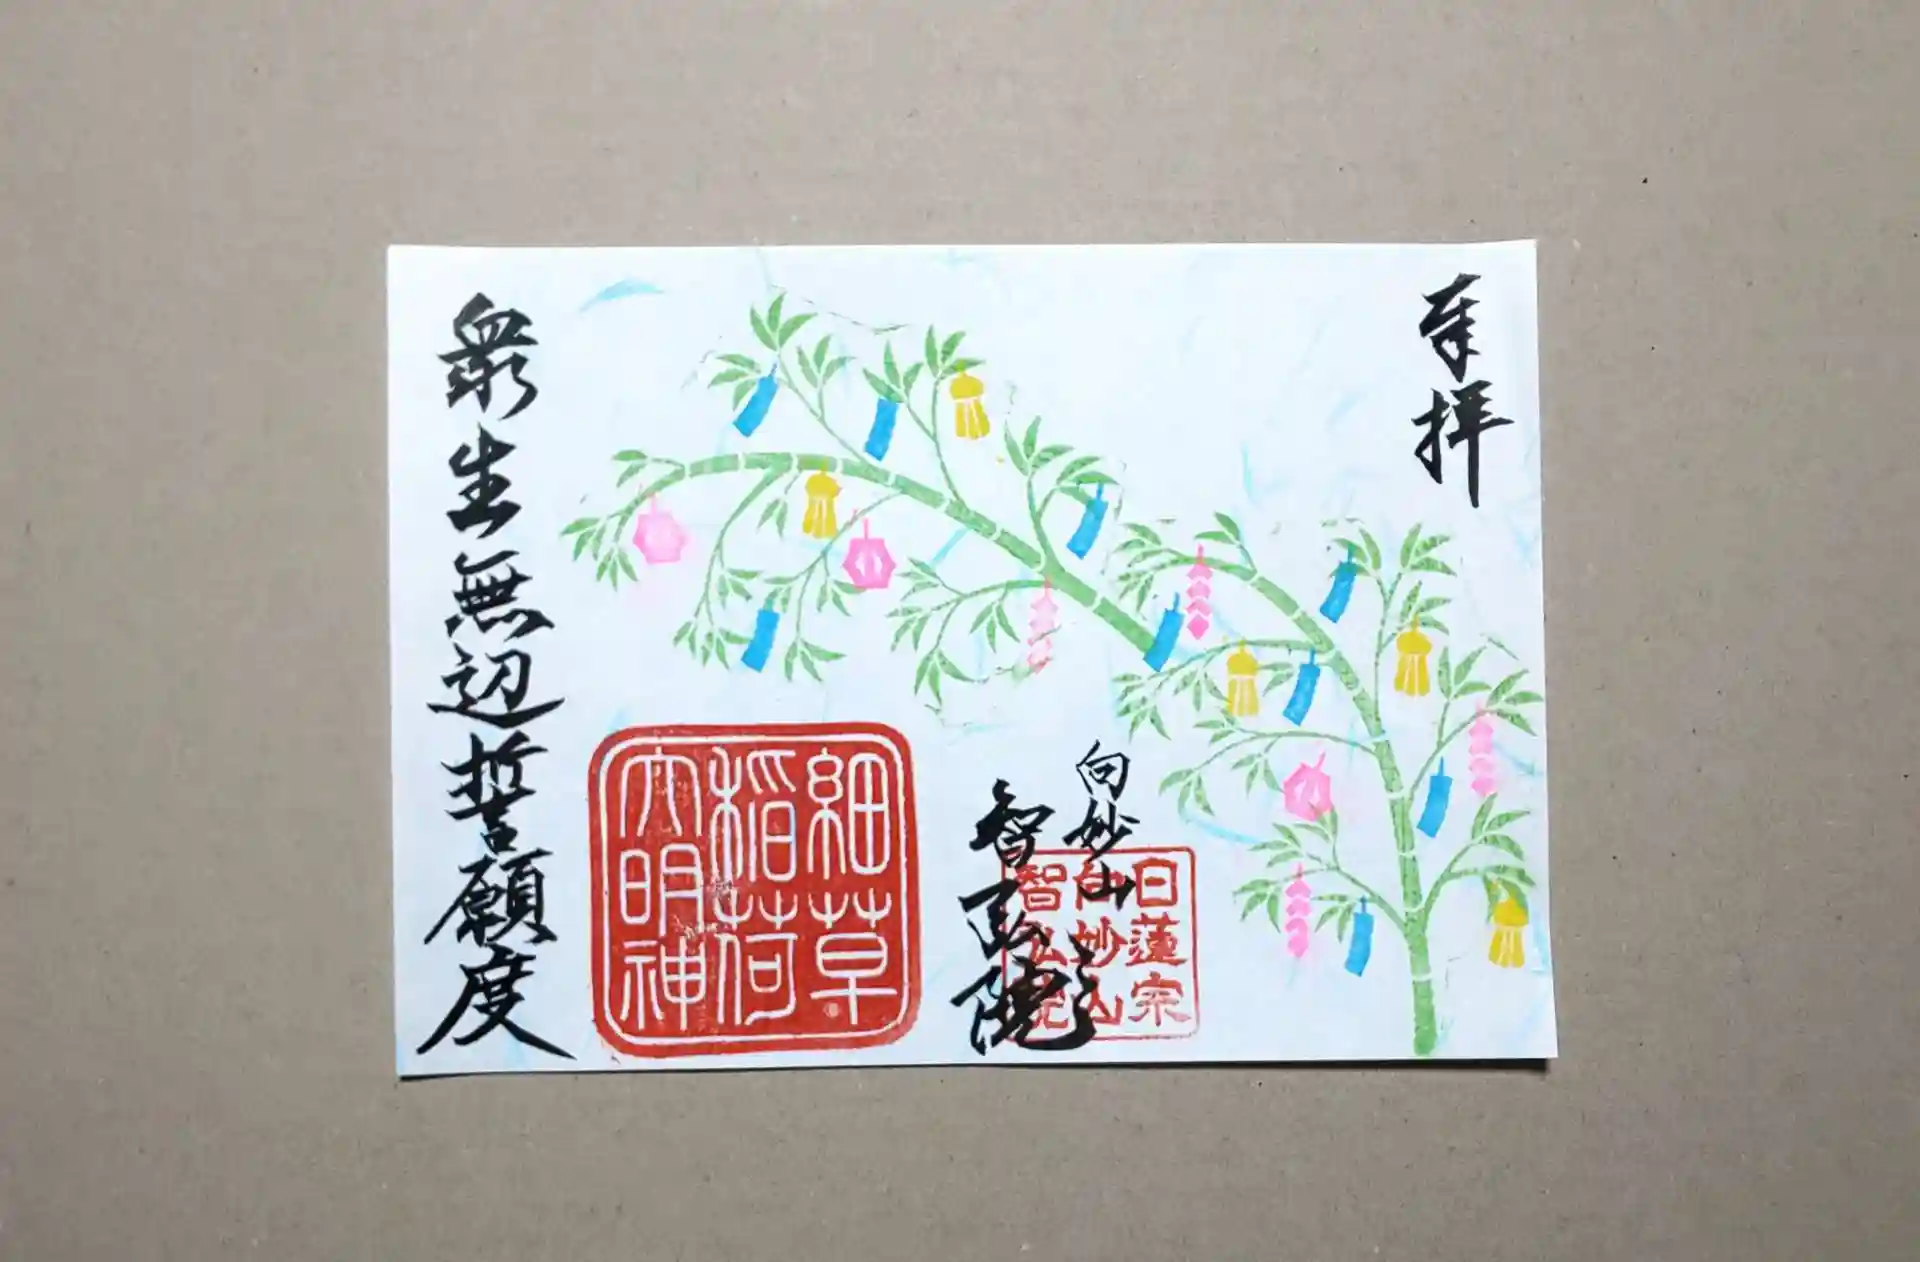 奉拝
白妙山
智弘院
日蓮宗
白妙山
智弘院
細草
稲荷
大明神
衆生無辺誓願度